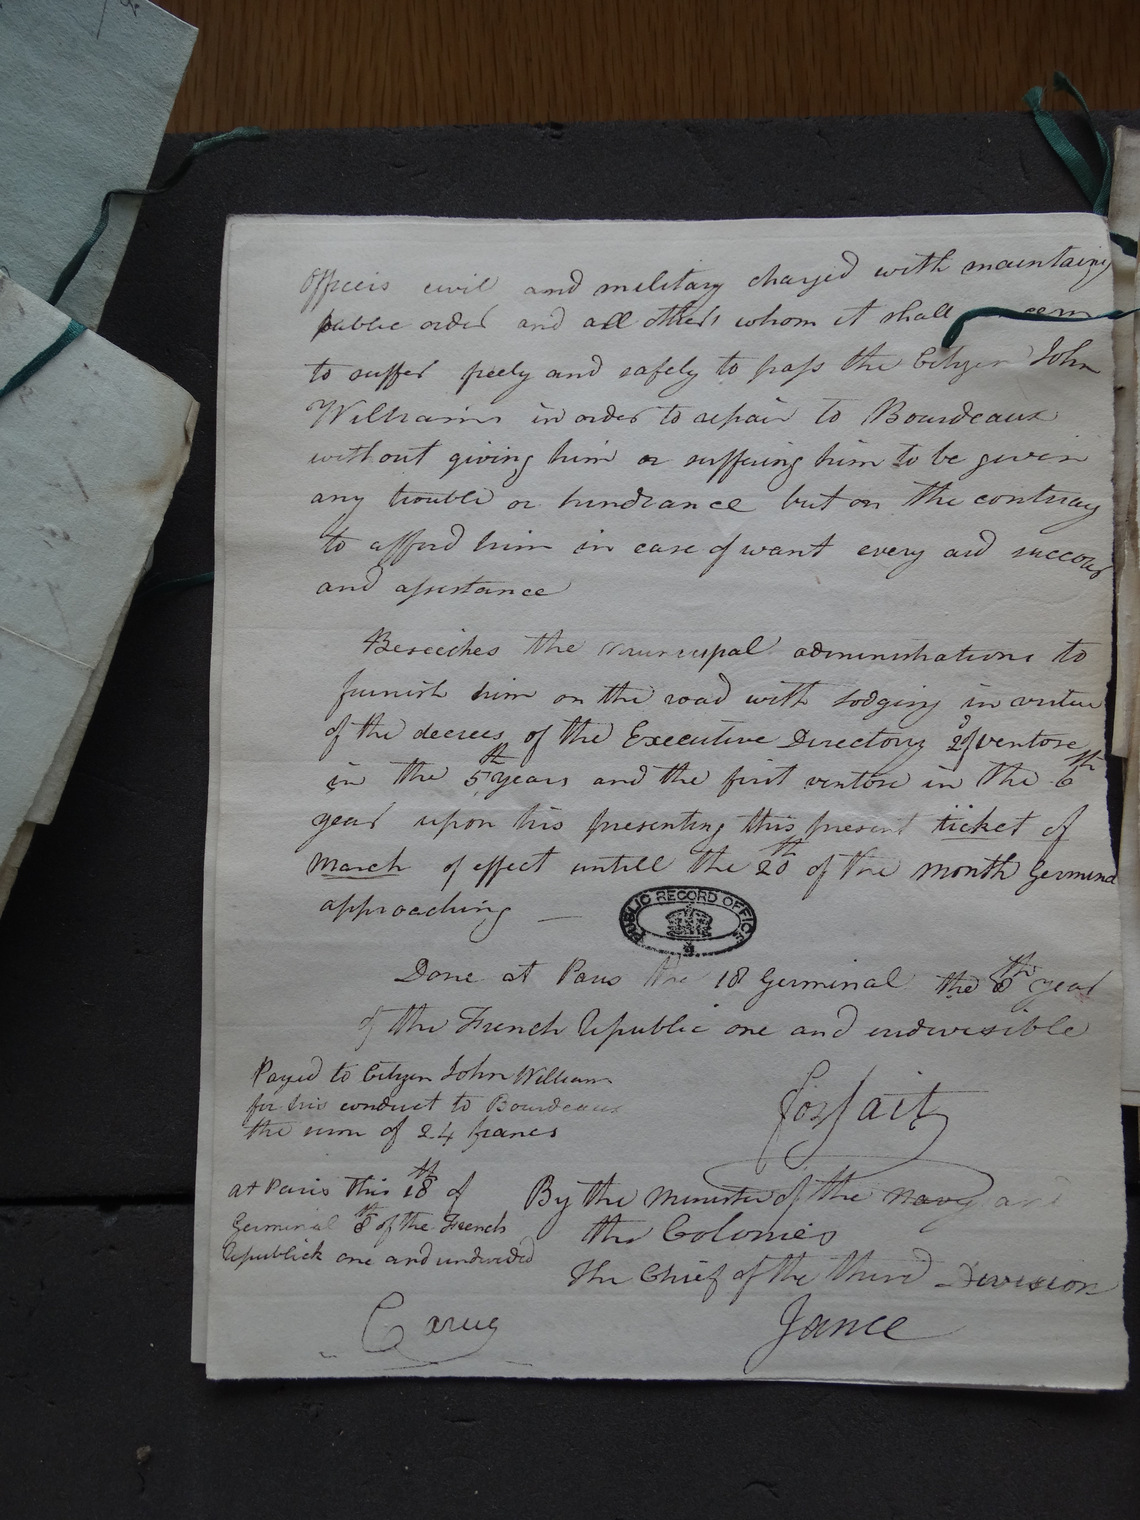 Officers civil and military charged with maintaing
public order and all others whom it shall cern
to suffer freely and safely to pass the Citizen John
Williams in order to repair to Bourdeaux
without giving him or suffering him to be given
any trouble or hindrance but on the contrary
to afford him in case of want every aid succour
and assistance
Beseeches the municipal administrations to
furnish him on the road with lodging in virtue
of the decrees of the Executive Directory 2d of ventose
in the 5th years and the first ventose in the 6th
year upon his presenting this present ticket of
March of effect untill the 28th of the month Germinal
approaching —
PUBLIC RECORD OFFICE
Done at Paris the 18 Germinal the 8th year
of the French Republic one and indivisible
Payed to Citizen John William
for his conduct to Bourdeaux
the sum of 24 francs
Forfait
at Paris this 18th of
Germinal 8th of the French
Republick one and undivided
By the Minister of the Navy and
the Colonies
The Chief of the third Division
Jance